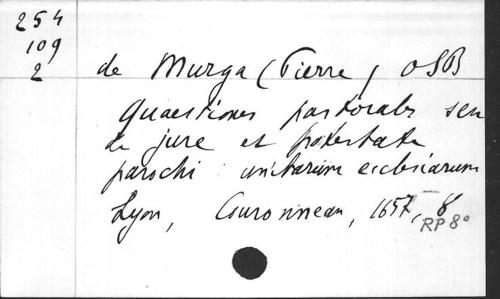 254
109
2
de Murga (Pierre, OSB
Quaestiones pastorales seu
de jure et potestate
parochi unitarum ecclesiarum
Lyon, Couronneau, 1657, 8
RP 8°